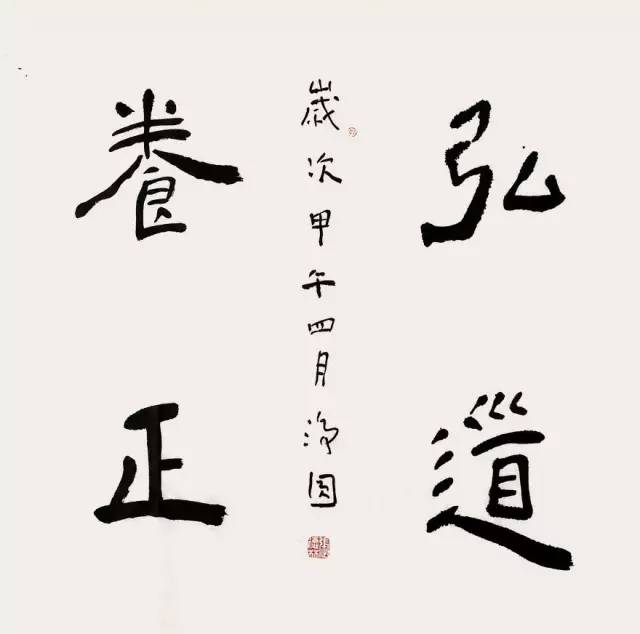 弘道
養正
歲次甲午四月淨圓